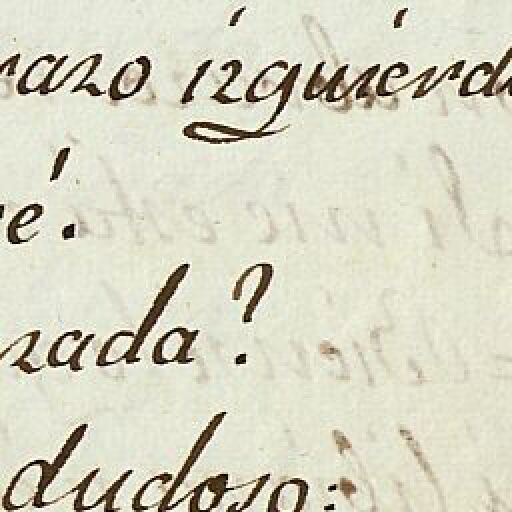 razo izquierd
ré.
zada?
dudoso: